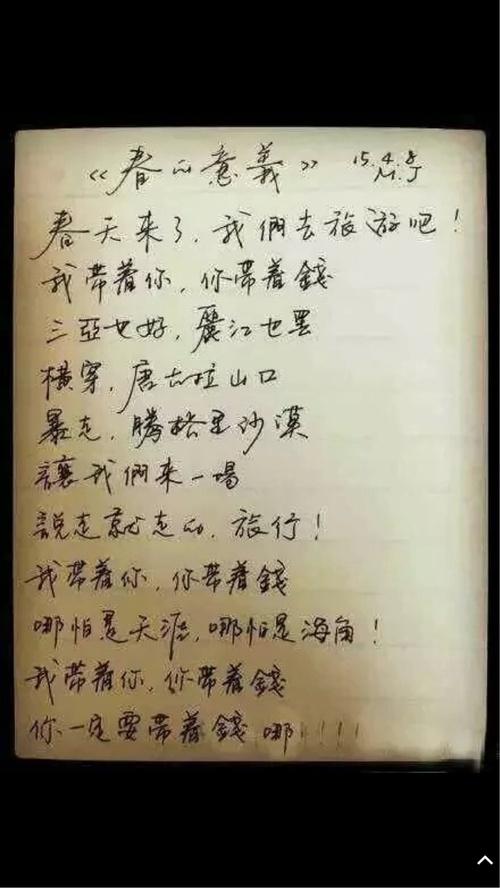 《春的意義》 15.4.8
M.J
春天来了，我們去旅游吧！
我带着你，你带着錢
三亞也好，麗江也罢
横穿，唐古拉山口
暴走，腾格里沙漠
讓我們来一場
説走就走的，旅行！
我带着你，你带着錢
哪怕是天涯，哪怕是海角！
我带着你，你带着錢
你一定要带着錢哪！！！！